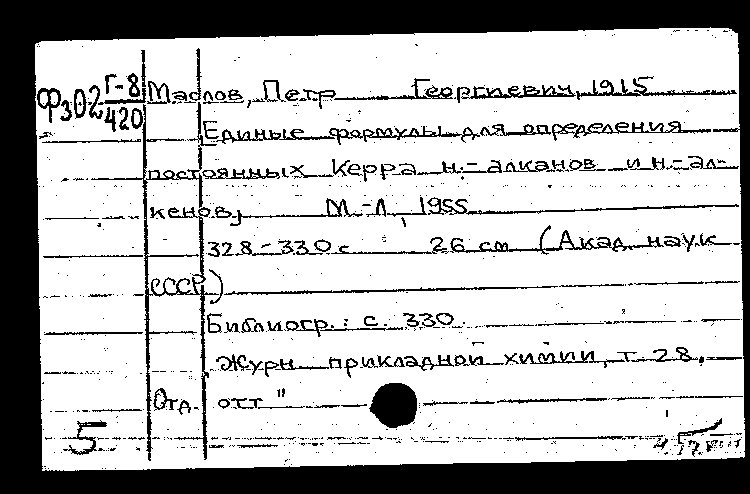 Фз02 Г-8/420 Маслов, Петр Георгиевич, 1915
Единые формулы для определения
постоянных Керра н.-алканов и н.-ал-
кенов, М.-Л., 1955
328-330 с 26 см (Акад. наук
СССР)
Библиогр.: с. 330.
Журн. прикладной химии, т. 28,
Отд. отт"
5